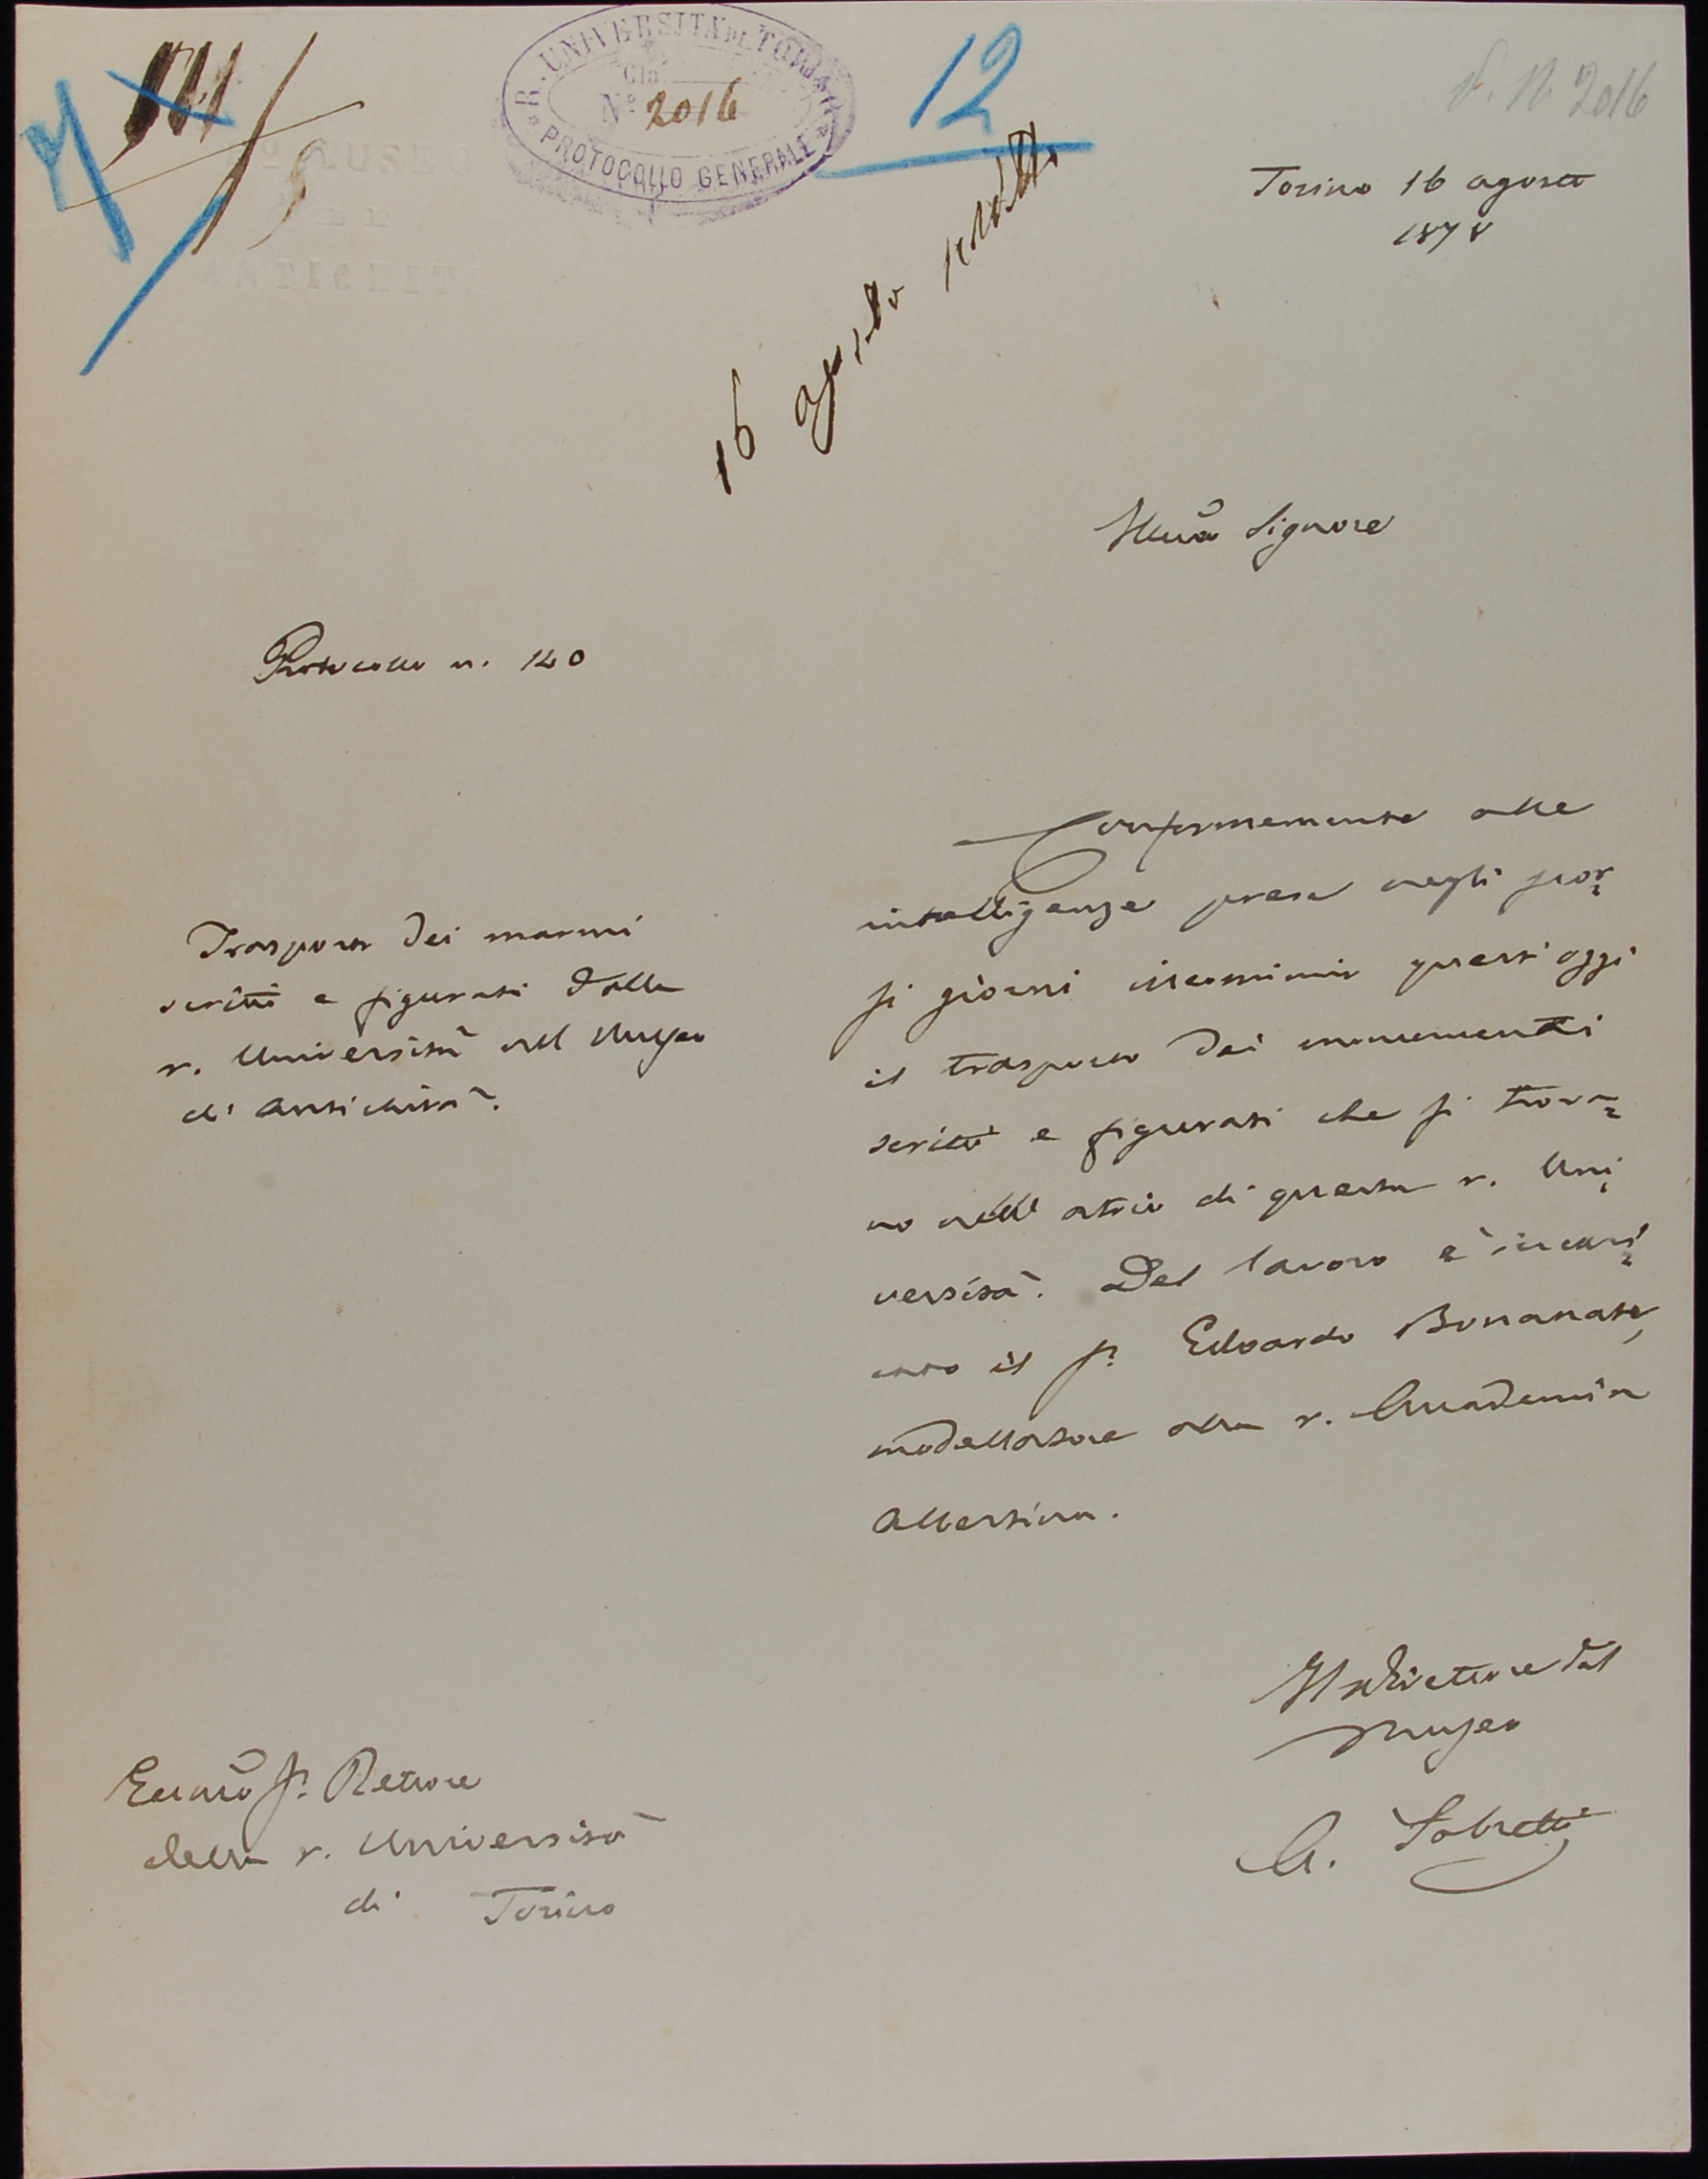 R. UNIVERSITÀ DI TORINO
Cla
Nº 2016
PROTOCOLLO GENERALE
12
P. N. 2016
Rº MUSEO
DI
ANTICHITÀ
Torino 16 agosto
1878
16 agosto
Illmo Signore
Protocollo n. 120
Trasporto dei marmi
scritti e figurati dalla
r. Università al Museo
di Antichità.
Conformemente alle
intelligenze prese negli scor-
si giorni incominciò quest'oggi
il trasporto dei monumenti
scritti e figurati che si trova-
no nell'atrio di questa r. Uni-
versità. Del lavoro è incari-
cato il Sr. Edoardo Bonanate,
modellatore alla r. Accademia
Albertina.
Il Direttore del
Museo
A. Fabretti
Eccmo Sr. Rettore
della r. Università
di Torino